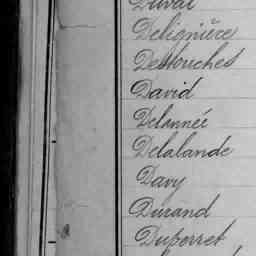 Duval
Delignière
Destouches
David
Delannée
Delalande
Davy
Durand
Duperret